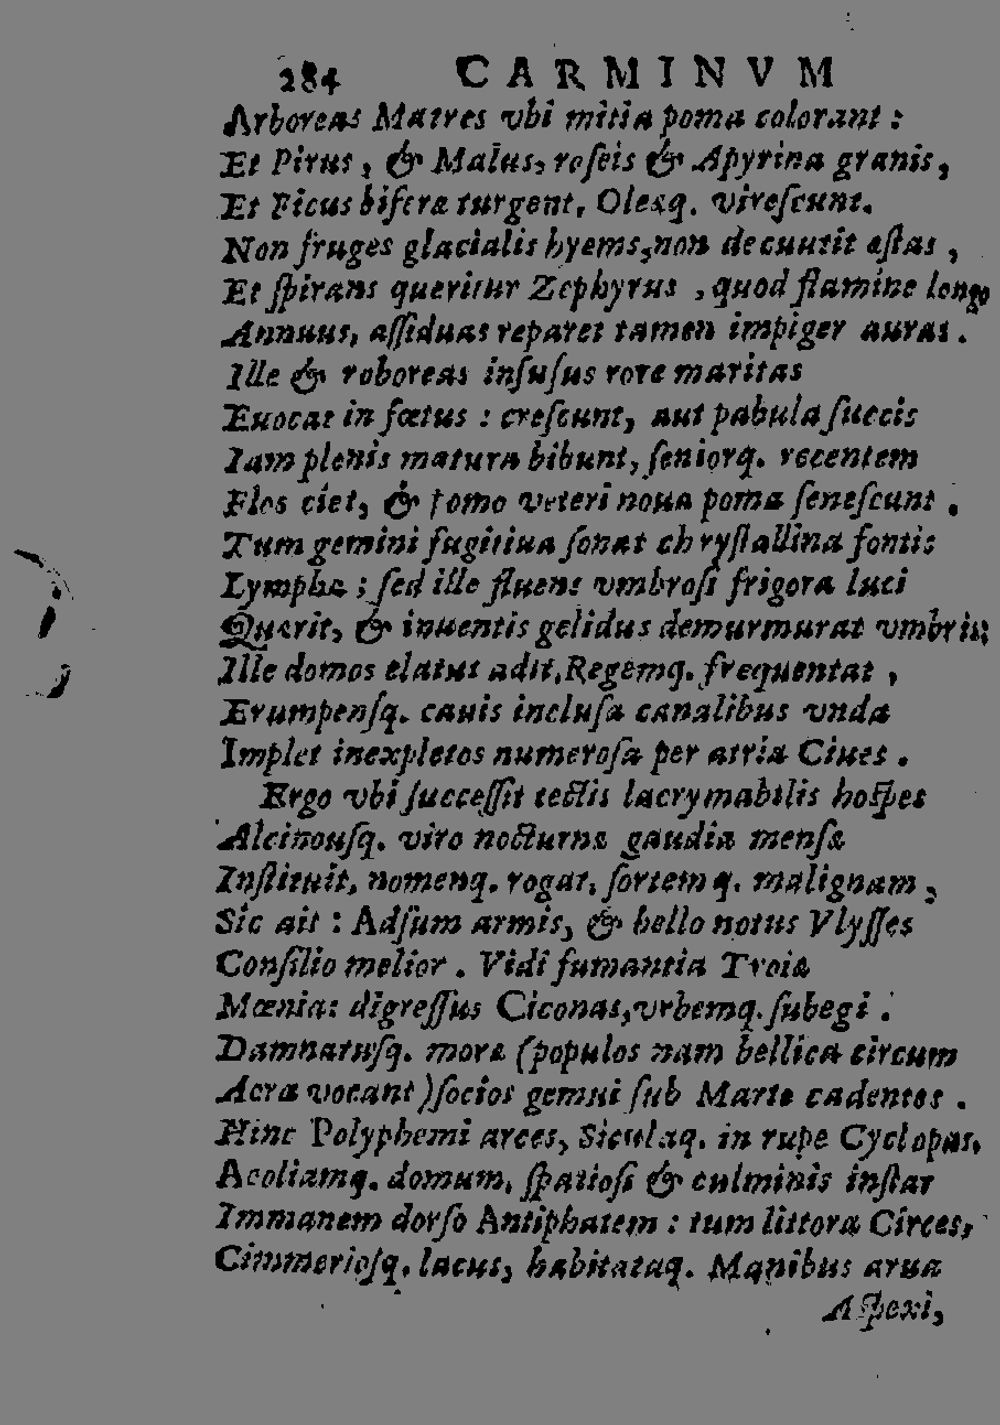 284 CARMINVM
Arboreas Matres vbi mitia poma colorant :
Et Pirus, & Malus, roſeis & Apyrina granis,
Et Ficus biferæ turgent, Oleæq. vireſcunt.
Non fruges glacialis hyems, non decuutit æſtas,
Et ſpirans queritur Zephyrus, quod flamine longo
Annuus, aſſiduas reparet tamen impiger auras.
Ille & roboreas inſuſus rore maritas
Euocat in fœtus : creſcunt, aut pabula ſuccis
Iam plenis matura bibunt, ſeniorq. recentem
Flos ciet, & pomo veteri noua poma ſeneſcunt.
Tum gemini fugitiua ſonat chryſtallina fontis
Lympha ; ſed ille fluens vmbroſi frigora luci
Quærit, & inuentis gelidus demurmurat vmbris;
Ille domos elatus adit, Regemq. frequentat,
Erumpenſq. cauis incluſa canalibus vnda
Implet inexpletos numeroſa per atria Ciues.
Ergo vbi ſucceſſit tectis lacrymabilis hoſpes
Alcinouſq. viro nocturnæ gaudia menſæ
Inſtituit, nomenq. rogat, ſortemq. malignam,
Sic ait : Adſum armis, & bello notus Vlyſſes
Conſilio melior. Vidi fumantia Troiæ
Mœnia: digreſſus Ciconas, vrbemq. ſubegi :
Damnatuſq. moræ (populos nam bellica circum
Acra vocant) ſocios gemui ſub Marte cadentes.
Hinc Polyphemi arces, Siculaq. in rupe Cyclopas,
Aeoliamq. domum, ſpatioſi & culminis inſtar
Immanem dorſo Antiphatem : tum littora Circes,
Cimmerioſq. lacus, habitataq. Manibus arua
Aſpexi,